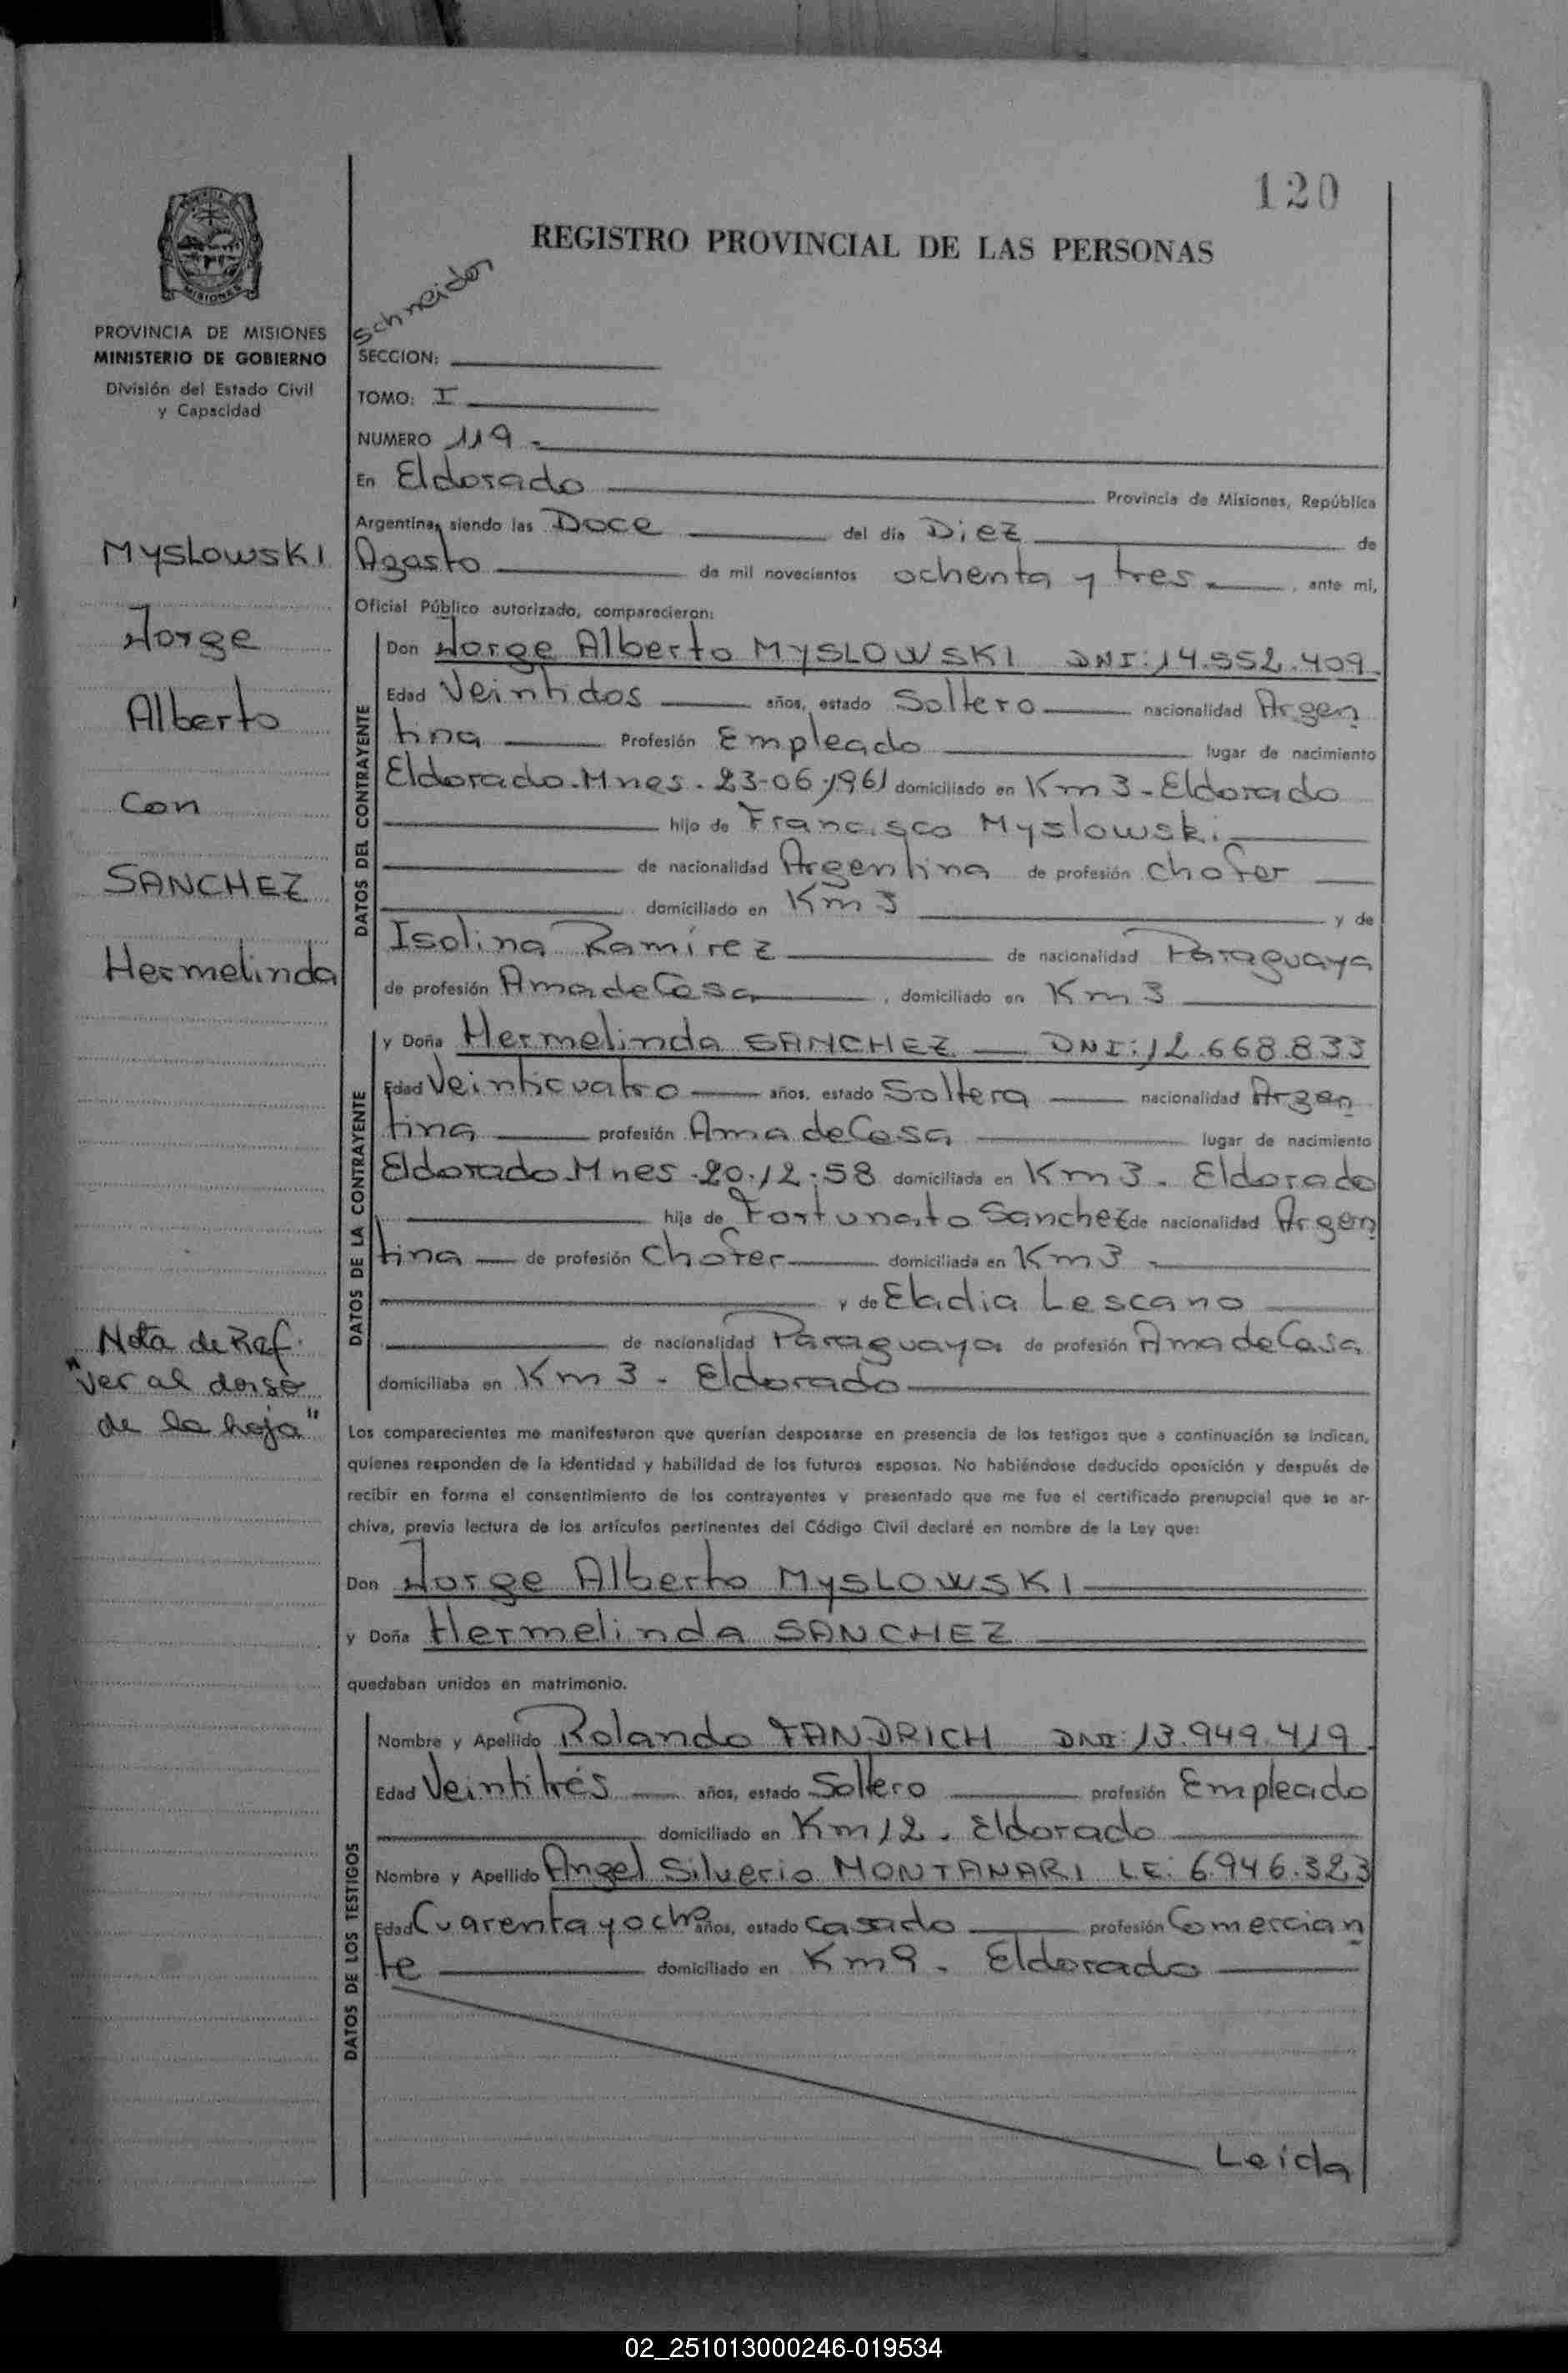 120
REGISTRO PROVINCIAL DE LAS PERSONAS
MISIONES
PROVINCIA DE MISIONES
MINISTERIO DE GOBIERNO
División del Estado Civil
y Capacidad
Schneider
SECCION:
TOMO: I
NUMERO 119.-
En Eldorado Provincia de Misiones, República
Argentina, siendo las Doce del día Diez de
Agosto de mil novecientos ochenta y tres. ante mi,
Oficial Público autorizado, comparecieron:
Myslowski
Jorge
Alberto
Con
SANCHEZ
Hermelinda
DATOS DEL CONTRAYENTE
Don Jorge Alberto MYSLOWSKI DNI: 14.552.409
Edad Veintidos años, estado Soltero nacionalidad Argen
tina Profesión Empleado lugar de nacimiento
Eldorado.Mnes. 23-06-1961 domiciliado en Km 3 - Eldorado
hijo de Francisco Myslowski
de nacionalidad Argentina de profesión chofer
domiciliado en Km 3 y de
Isolina Ramírez de nacionalidad Paraguaya
de profesión Ama de Casa, domiciliado en Km 3
DATOS DE LA CONTRAYENTE
y Doña Hermelinda SANCHEZ DNI: 12.668.833
Edad Veinticuatro años, estado Soltera nacionalidad Argen
tina profesión Ama de Casa lugar de nacimiento
Eldorado.Mnes. 20.12.58 domiciliada en Km 3. Eldorado
hija de Fortunato Sanchez de nacionalidad Argen
tina de profesión chofer domiciliada en Km 3
y de Eladia Lescano
de nacionalidad Paraguaya de profesión Ama de Casa
domiciliaba en Km 3 - Eldorado
Nota de Ref.
"Ver al dorso
de la hoja"
Los comparecientes me manifestaron que querían desposarse en presencia de los testigos que a continuación se indican,
quienes responden de la identidad y habilidad de los futuros esposos. No habiéndose deducido oposición y después de
recibir en forma el consentimiento de los contrayentes y presentado que me fue el certificado prenupcial que se ar-
chiva, previa lectura de los artículos pertinentes del Código Civil declaré en nombre de la Ley que:
Don Jorge Alberto MYSLOWSKI
y Doña Hermelinda SANCHEZ
quedaban unidos en matrimonio.
DATOS DE LOS TESTIGOS
Nombre y Apellido Rolando FANDRICH DNI: 13.949.419
Edad Veintitrés años, estado Soltero profesión Empleado
domiciliado en Km 12. Eldorado
Nombre y Apellido Angel Silverio MONTANARI LE: 6.946.323
Edad Cuarenta y ocho años, estado casado profesión Comercian
te domiciliado en Km 9. Eldorado
Leida
02_251013000246-019534